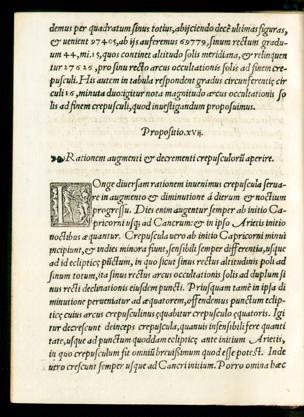 demus per quadratum sinus totius, abijciendo decē ultimas figuras,
& uenient 97405, ab ijs auferemus 69779, sinum rectum gradu-
um 44, mi. 15, quos continet altitudo solis meridiana, & relinquen
tur 27626, pro sinu recto arcus occultationis solis ad finem cre-
pusculi. His autem in tabula respondent gradus circunferentiæ cir
culi 16, minuta duo: igitur nota magnitudo arcus occultationis so
lis ad finem crepusculi, quod inuestigandum proposuimus.
Propositio. xvij.
Rationem augmenti & decrementi crepusculorū aperire.
LOnge diuersam rationem inuenimus crepuscula serua-
re in augmento & diminutione á dierum & noctium
progressu. Dies enim augentur semper ab initio Ca-
pricorni usq; ad Cancrum: & in ipso Arietis initio
noctibus æquantur. Crepuscula uero ab initio Capricorni minui
incipiunt, & indies minora fiunt, sensibili semper differentia, usque
ad id eclipticę pūctum, in quo sicut sinus rectus altitudinis poli ad
sinum totum, ita sinus rectus arcus occultationis solis ad duplum si
nus recti declinationis eiusdem puncti. Priusquam tamē in ipsa di
minutione perueniatur ad æquatorem, offendemus punctum eclip-
ticę cuius arcus crepusculinus ęquabitur crepusculo ęquatoris. Igi
tur decrescunt deinceps crepuscula, quamuis insensibili fere quanti
tate, usque ad punctum quoddam eclipticę ante initium Arietis,
in quo crepusculum sit omniū breuissimum quod esse potest. Inde
uero crescunt semper usque ad Cancri initium. Porro omina hæc